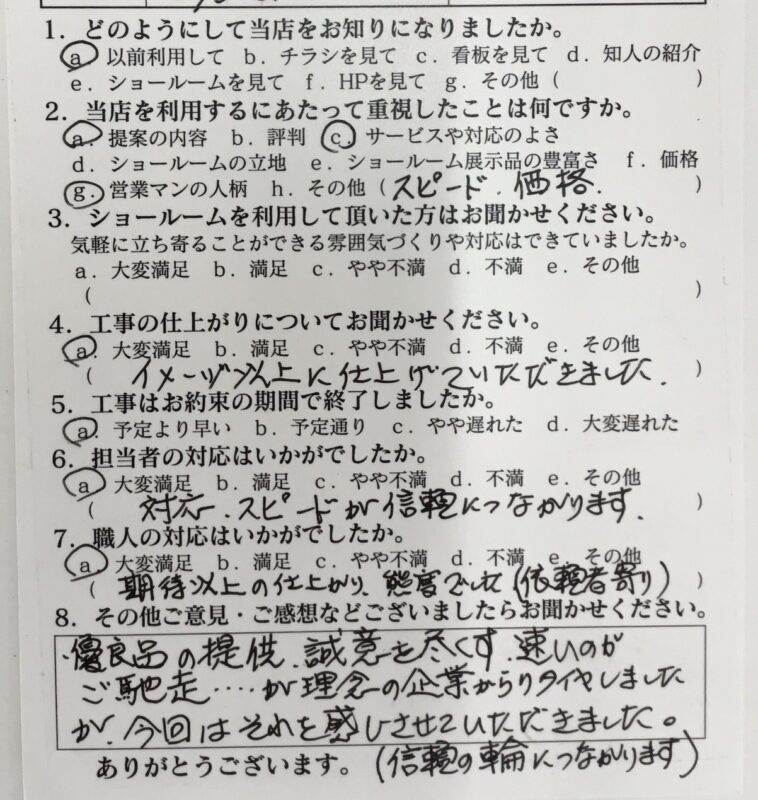 1．どのようにして当店をお知りになりましたか。
a．以前利用して b．チラシを見て c．看板を見て d．知人の紹介
e．ショールームを見て f．HPを見て g．その他（　　　　　）
2．当店を利用するにあたって重視したことは何ですか。
a．提案の内容 b．評判 c．サービスや対応のよさ
d．ショールームの立地 e．ショールーム展示品の豊富さ f．価格
g．営業マンの人柄 h．その他（スピード．価格．）
3．ショールームを利用して頂いた方はお聞かせください。
気軽に立ち寄ることができる雰囲気づくりや対応はできていましたか。
a．大変満足 b．満足 c．やや不満 d．不満 e．その他
（　　　　　）
4．工事の仕上がりについてお聞かせください。
a．大変満足 b．満足 c．やや不満 d．不満 e．その他
（イメージ以上に仕上げていただきました．）
5．工事はお約束の期間で終了しましたか。
a．予定より早い b．予定通り c．やや遅れた d．大変遅れた
6．担当者の対応はいかがでしたか。
a．大変満足 b．満足 c．やや不満 d．不満 e．その他
（対応．スピードが信頼につながります．）
7．職人の対応はいかがでしたか。
a．大変満足 b．満足 c．やや不満 d．不満 e．その他
（期待以上の仕上がり、態度でした（依頼者寄り））
8．その他ご意見・ご感想などございましたらお聞かせください。
・優良品の提供．誠意を尽くす．速いのが
ご馳走‥‥が理念の企業からリタイヤしました
が、今回はそれを感じさせていただきました。
ありがとうございます。（信頼の輪につながります）